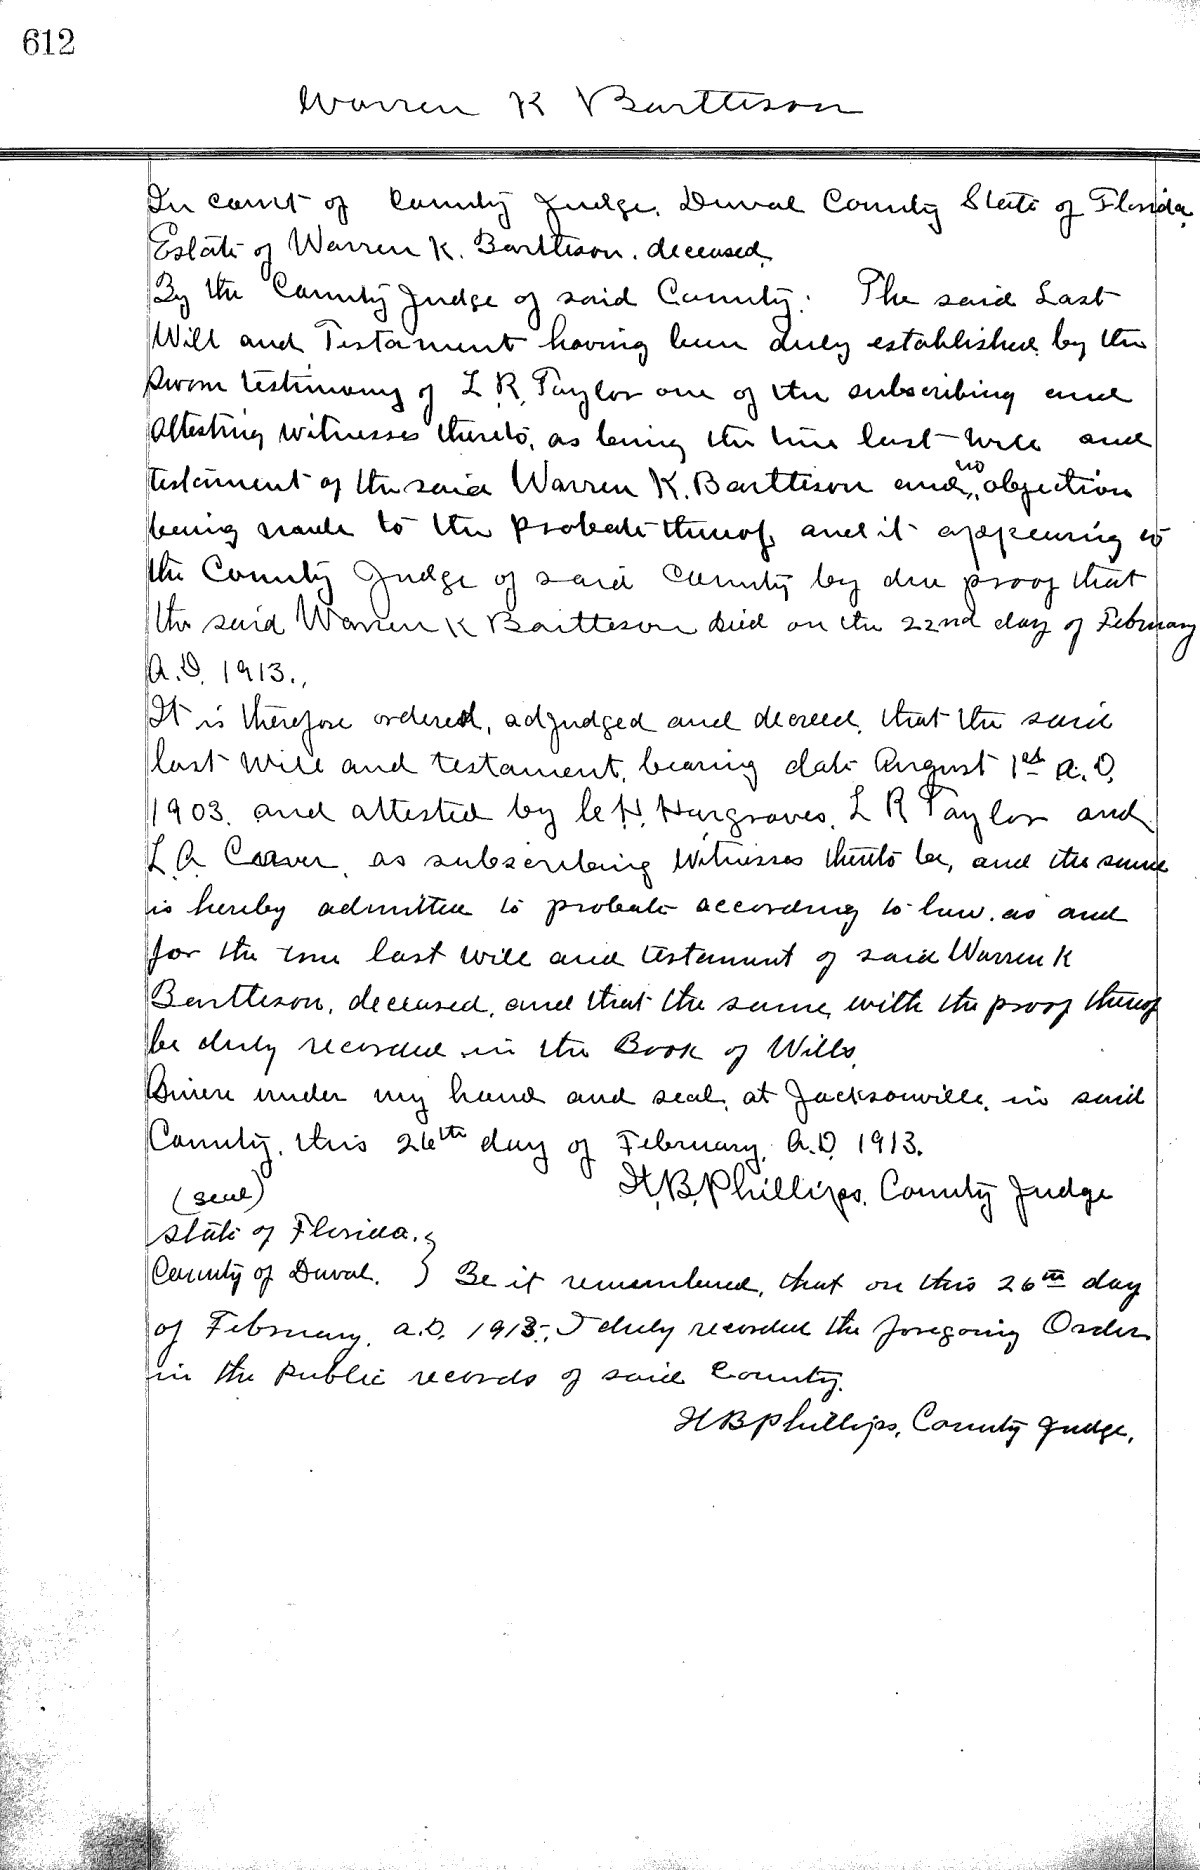 612
Warren K Barttison
In court of County Judge, Duval County State of Florida,
Estate of Warren K. Barttison, deceased,
By the County Judge of said County: The said Last
Will and Testament having been duly established by the
sworn testimony of L. R. Taylor one of the subscribing and
attesting witnesses thereto, as being the true last will and
testament of the said Warren K. Barttison and no objection
being made to the probate thereof, and it appearing to
the County Judge of said County by due proof that
the said Warren K Barttison died on the 22nd day of February
A.D. 1913.,
It is therefore ordered, adjudged and decreed, that the said
last will and testament, bearing date August 1st A.D.
1903, and attested by C. H. Hargraves, L R Taylor and
L. A. Carver, as subscribing witnesses thereto be, and the same
is hereby admitted to probate according to law, as and
for the true last will and testament of said Warren K
Barttison, deceased, and that the same, with the proof thereof
be duly recorded in the Book of Wills,
Given under my hand and seal, at Jacksonville, in said
County, this 26th day of February, A.D. 1913.
(seal) H. B. Phillips, County Judge
State of Florida, }
County of Duval. } Be it remembered, that on this 26th day
of February, A.D. 1913, I duly recorded the foregoing Order
in the public records of said County.
H B Phillips, County Judge,